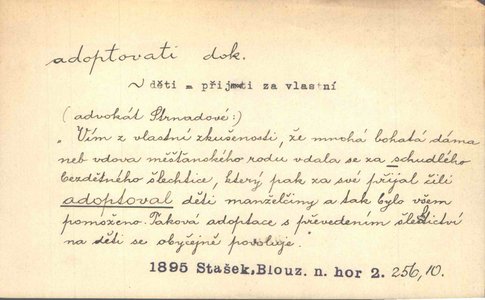 adoptovati dok.
~ děti = přijmoti za vlastní
(advokát Strnadové:)
"Vím z vlastní zkušenosti, že mnohá bohatá dáma
neb vdova měšťanského rodu vdala se za schudlého
bezdětného šlechtice, který pak za své přijal čili
adoptoval děti manželčiny a tak bylo všem
pomoženo. Taková adoptace s převedením šlechtictví
na děti se obyčejně povoluje.
1895 Stašek, Blouz. n. hor 2. 256,10.